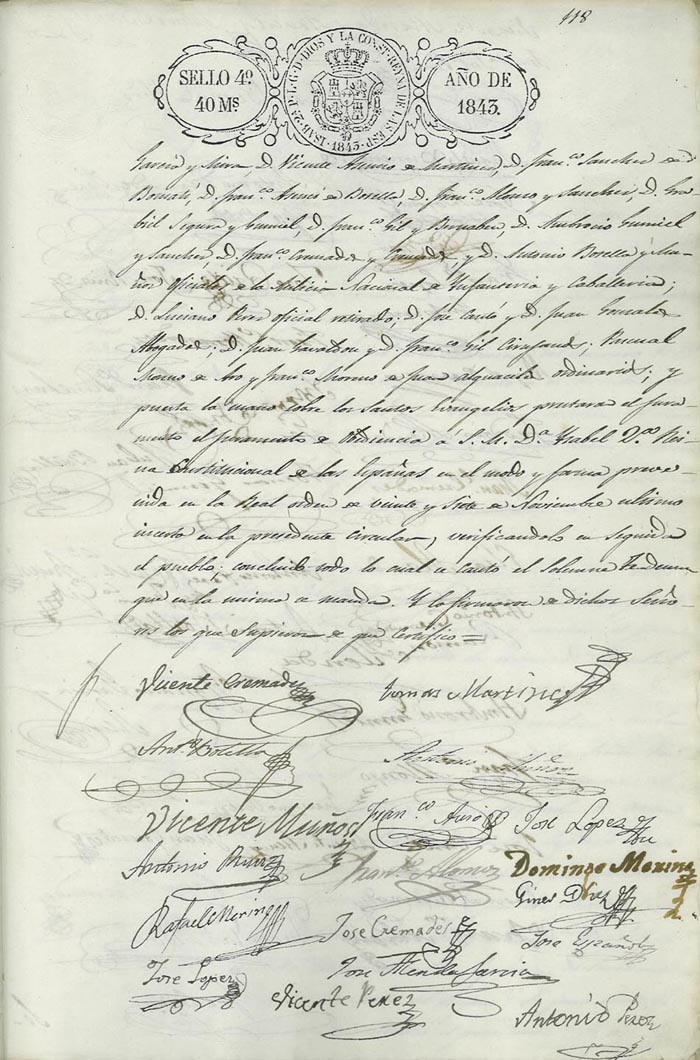 118
SELLO 4º
40 Ms
ISAB. 2ª P. L. G. D. DIOS Y LA CONST. REYNA DE LAS ESP.
1843.
AÑO DE
1843.
Garcia y Mira, D. Vicente Asencio de Martinez, D. Franco Sanchez de
D. Franco de Botella, D. Franco Alonso y Sanchez, D. Ga
briel Segura y Gumiel, D. Franco Gil y Bernabeu, D. Ambrocio Gumiel
y Sanchez, D. Franco Cremades y Cremades, y D. Antonio Botella y Mu
ñoz oficiales de la Milicia Nacional de Ynfanteria y Caballeria;
D. Luciano oficial retirado; D. Jose Cantó y D. Juan Gonzalez
Abogados; D. Juan y D. Franco Gil Pascual
Moreno de y Franco Moreno de Juan alguaciles ordinarios; y
puesta la mano sobre los Santos Evangelios prestaron el jura
mento el juramento de Obediencia á S. M. Dª Ysabel 2ª Rei
na Constitucional de las Españas en el modo y forma preve
nida en la Real orden de veinte y Siete de Noviembre ultimo
inserto en la presedente Circular, verificandolo en seguida
el pueblo: concluido todo lo cual se cantó el Solemne Te deum
que en la misma se manda. Y lo firmaron de dichos Seño
res los que Supieron de que Certifico =
Vicente Cremades
Tomas Martinez
Anto Botella
Antonio
Vicente Muños
Franco
Jose Lopez
Antonio
Franco Alonso
Domingo Merina
Gines Diez
Rafael Merina
Jose Cremades
Jose Español
Jose Lopez
Jose Garcia
Vicente Perez
Antonio Perez